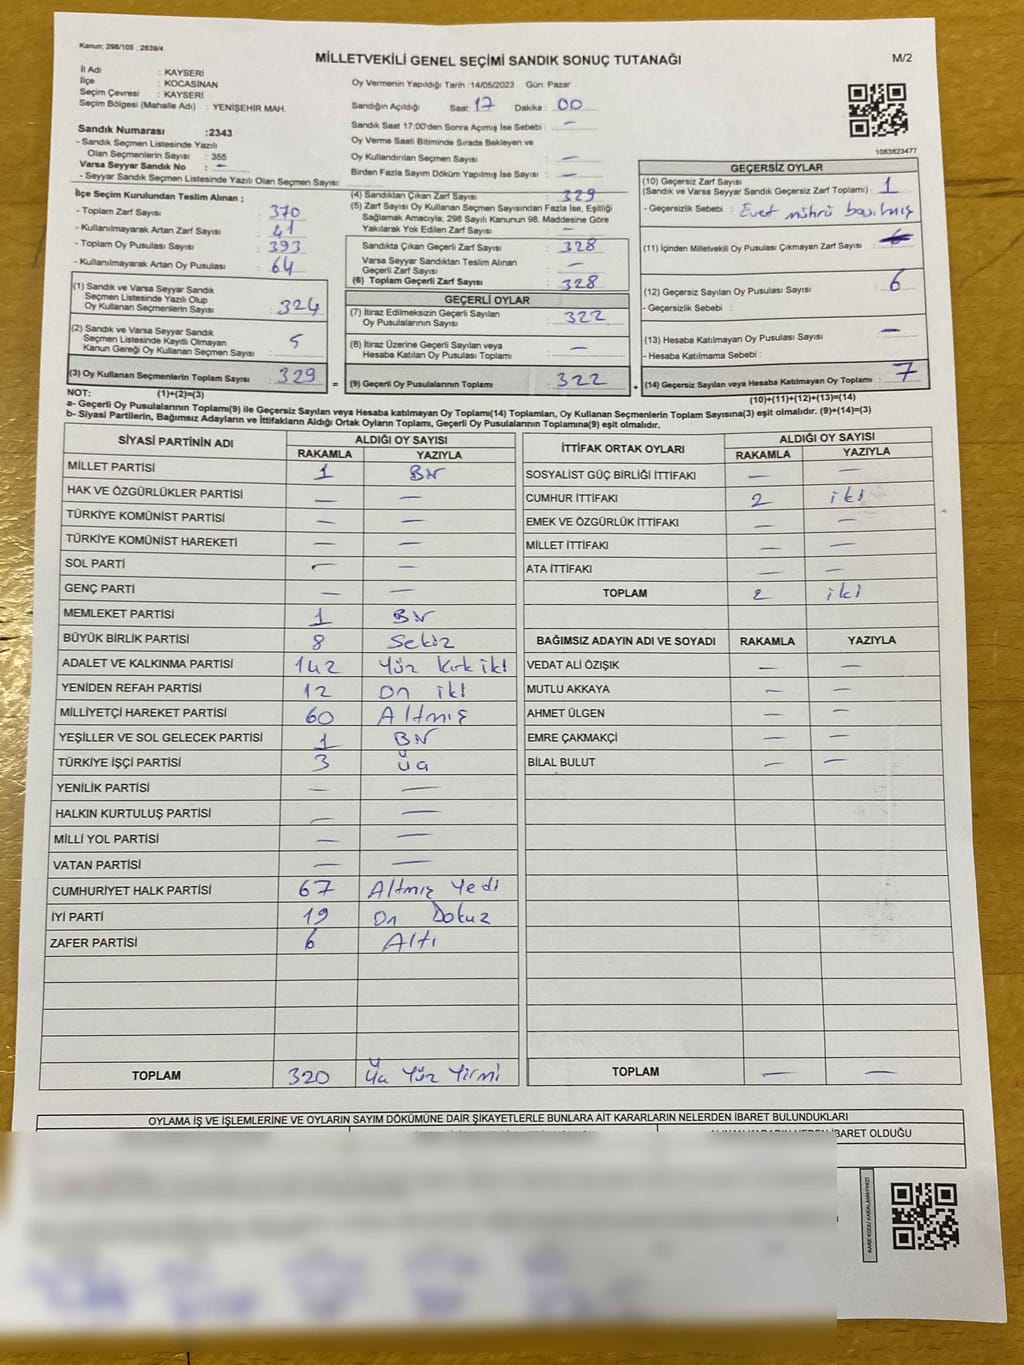 Kanun: 298/105 , 2839/4
MİLLETVEKİLİ GENEL SEÇİMİ SANDIK SONUÇ TUTANAĞI
M/2
İl Adı : KAYSERİ
İlçe : KOCASİNAN
Seçim Çevresi : KAYSERİ
Seçim Bölgesi (Mahalle Adı) : YENİŞEHİR MAH.
Sandık Numarası :2343
- Sandık Seçmen Listesinde Yazılı
Olan Seçmenlerin Sayısı : 355
Varsa Seyyar Sandık No : —
- Seyyar Sandık Seçmen Listesinde Yazılı Olan Seçmen Sayısı:
Oy Vermenin Yapıldığı Tarih :14/05/2023 Gün: Pazar
Sandığın Açıldığı Saat: 17 Dakika : 00
Sandık Saat 17:00'den Sonra Açımış İse Sebebi : —
Oy Verme Saati Bitiminde Sırada Bekleyen ve
Oy Kullandırılan Seçmen Sayısı : —
Birden Fazla Sayım Döküm Yapılmış İse Sayısı : —
1083823477
İlçe Seçim Kurulundan Teslim Alınan ;
- Toplam Zarf Sayısı : 370
- Kullanılmayarak Artan Zarf Sayısı : 41
- Toplam Oy Pusulası Sayısı : 393
- Kullanılmayarak Artan Oy Pusulası : 64
(1) Sandık ve Varsa Seyyar Sandık
Seçmen Listesinde Yazılı Olup
Oy Kullanan Seçmenlerin Sayısı : 324
(2) Sandık ve Varsa Seyyar Sandık
Seçmen Listesinde Kayıtlı Olmayan
Kanun Gereği Oy Kullanan Seçmen Sayısı : 5
(3) Oy Kullanan Seçmenlerin Toplam Sayısı : 329
(4) Sandıktan Çıkan Zarf Sayısı : 329
(5) Zarf Sayısı Oy Kullanan Seçmen Sayısından Fazla İse, Eşitliği
Sağlamak Amacıyla; 298 Sayılı Kanunun 98. Maddesine Göre
Yakılarak Yok Edilen Zarf Sayısı : —
Sandıkta Çıkan Geçerli Zarf Sayısı : 328
Varsa Seyyar Sandıktan Teslim Alınan
Geçerli Zarf Sayısı : —
(6) Toplam Geçerli Zarf Sayısı : 328
GEÇERLİ OYLAR
(7) İtiraz Edilmeksizin Geçerli Sayılan
Oy Pusulalarının Sayısı : 322
(8) İtiraz Üzerine Geçerli Sayılan veya
Hesaba Katılan Oy Pusulası Toplamı : —
= (9) Geçerli Oy Pusulalarının Toplamı : 322
GEÇERSİZ OYLAR
(10) Geçersiz Zarf Sayısı
(Sandık ve Varsa Seyyar Sandık Geçersiz Zarf Toplamı) : 1
- Geçersizlik Sebebi : Evet mührü basılmış
(11) İçinden Milletvekili Oy Pusulası Çıkmayan Zarf Sayısı :
(12) Geçersiz Sayılan Oy Pusulası Sayısı : 6
- Geçersizlik Sebebi :
(13) Hesaba Katılmayan Oy Pusulası Sayısı : —
- Hesaba Katılmama Sebebi :
+ (14) Geçersiz Sayılan veya Hesaba Katılmayan Oy Toplamı : 7
NOT: (1)+(2)=(3)
(10)+(11)+(12)+(13)=(14)
a- Geçerli Oy Pusulalarının Toplamı(9) ile Geçersiz Sayılan veya Hesaba katılmayan Oy Toplamı(14) Toplamları, Oy Kullanan Seçmenlerin Toplam Sayısına(3) eşit olmalıdır. (9)+(14)=(3)
b- Siyasi Partilerin, Bağımsız Adayların ve İttifakların Aldığı Ortak Oyların Toplamı, Geçerli Oy Pusulalarının Toplamına(9) eşit olmalıdır.
SİYASİ PARTİNİN ADI ALDIĞI OY SAYISI
RAKAMLA YAZIYLA
MİLLET PARTİSİ 1 Bir
HAK VE ÖZGÜRLÜKLER PARTİSİ — —
TÜRKİYE KOMÜNİST PARTİSİ — —
TÜRKİYE KOMÜNİST HAREKETİ — —
SOL PARTİ — —
GENÇ PARTİ — —
MEMLEKET PARTİSİ 1 Bir
BÜYÜK BİRLİK PARTİSİ 8 Sekiz
ADALET VE KALKINMA PARTİSİ 142 Yüz kırk iki
YENİDEN REFAH PARTİSİ 12 On iki
MİLLİYETÇİ HAREKET PARTİSİ 60 Altmış
YEŞİLLER VE SOL GELECEK PARTİSİ 1 Bir
TÜRKİYE İŞÇİ PARTİSİ 3 Üç
YENİLİK PARTİSİ — —
HALKIN KURTULUŞ PARTİSİ — —
MİLLİ YOL PARTİSİ — —
VATAN PARTİSİ — —
CUMHURİYET HALK PARTİSİ 67 Altmış Yedi
İYİ PARTİ 19 On Dokuz
ZAFER PARTİSİ 6 Altı
TOPLAM 320 Üç Yüz Yirmi
İTTİFAK ORTAK OYLARI ALDIĞI OY SAYISI
RAKAMLA YAZIYLA
SOSYALİST GÜÇ BİRLİĞİ İTTİFAKI — —
CUMHUR İTTİFAKI 2 iki
EMEK VE ÖZGÜRLÜK İTTİFAKI — —
MİLLET İTTİFAKI — —
ATA İTTİFAKI — —
TOPLAM 2 iki
BAĞIMSIZ ADAYIN ADI VE SOYADI RAKAMLA YAZIYLA
VEDAT ALİ ÖZIŞIK — —
MUTLU AKKAYA — —
AHMET ÜLGEN — —
EMRE ÇAKMAKÇİ — —
BİLAL BULUT — —
TOPLAM — —
OYLAMA İŞ VE İŞLEMLERİNE VE OYLARIN SAYIM DÖKÜMÜNE DAİR ŞİKAYETLERLE BUNLARA AİT KARARLARIN NELERDEN İBARET BULUNDUKLARI
İBARET OLDUĞU